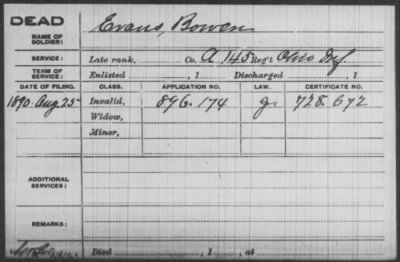 DEAD
NAME OF SOLDIER: Evans, Bowen
SERVICE: Late rank, Co. A 145 Reg't Ohio Inf
TERM OF SERVICE: Enlisted , 1 Discharged , 1
DATE OF FILING. CLASS. APPLICATION NO. LAW. CERTIFICATE NO.
1890. Aug 25 Invalid, 896.174 g. 728.672
Widow,
Minor,
ADDITIONAL SERVICES:
REMARKS:
Died , 1 , at